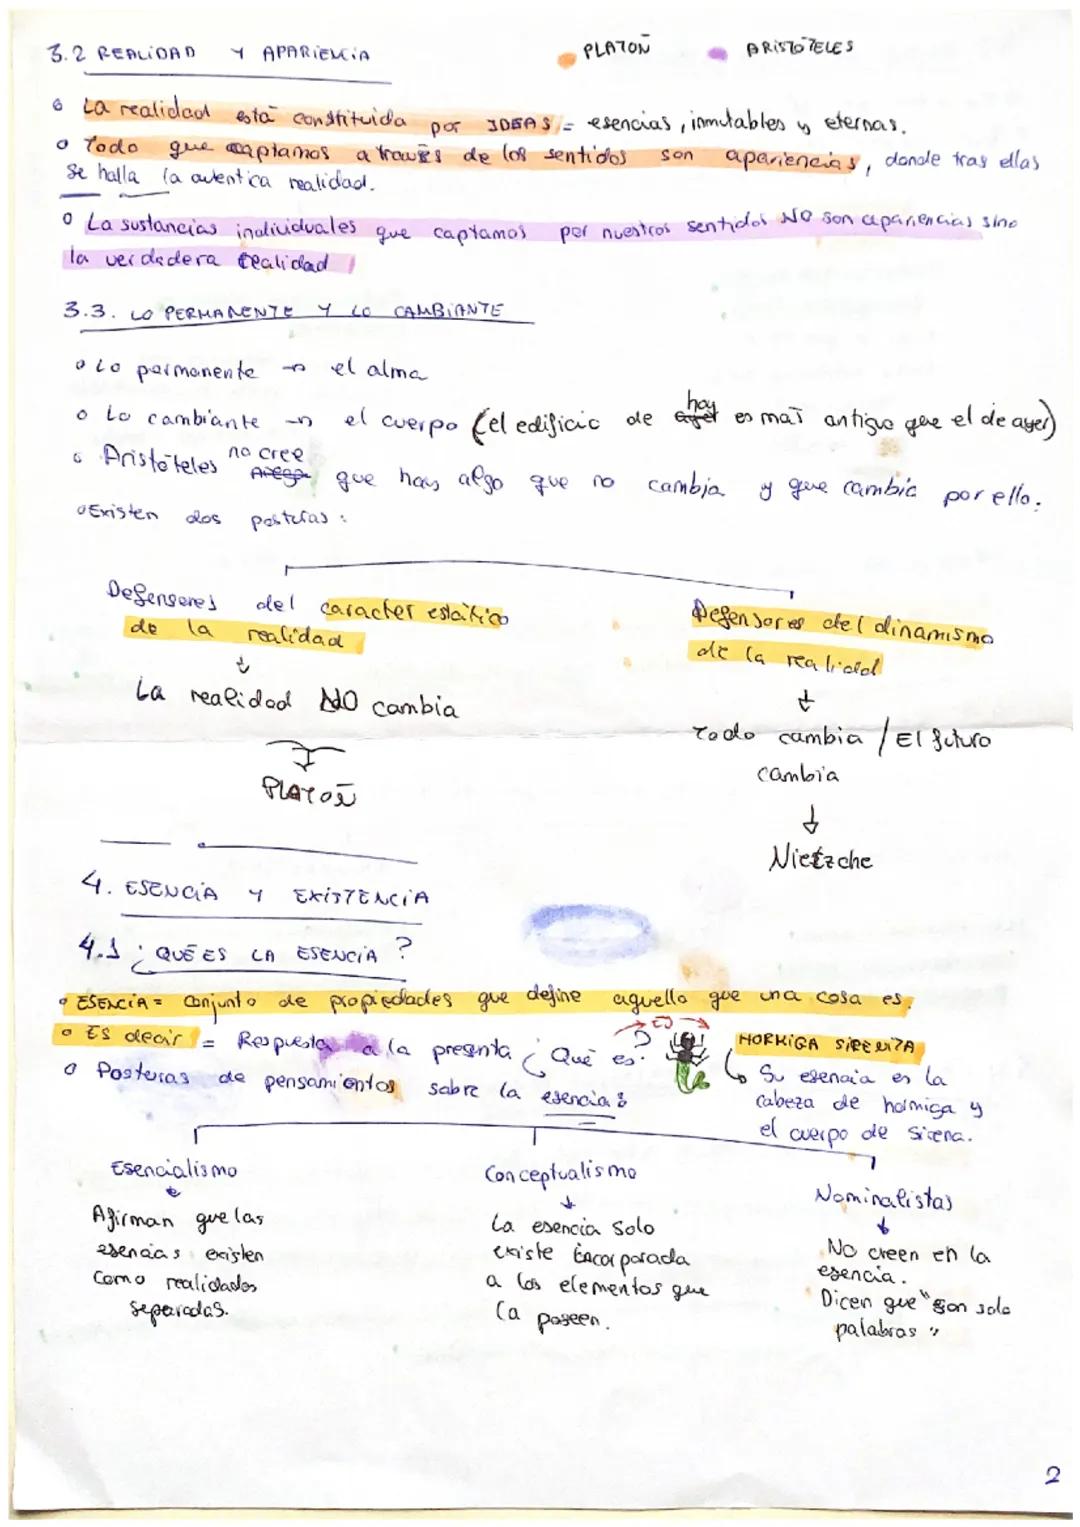 3.2 REALIDAD Y APARIENCIA
PLATOÑ
ARISTÓTELES
La realidad está constituida por IDEAS = esencias, inmutables y eternas.
Todo que captamos a través de los sentidos son apariencias, donde tras ellas
se halla la autentica realidad.
La sustancias individuales que captamos por nuestros sentidos NO son apariencias sino
la verdadera realidad
3.3. LO PERMANENTE Y LO CAMBIANTE
Lo permanente → el alma
Lo cambiante → el cuerpo (el edificio de hoy es más antiguo que el de ayer)
Aristóteles no cree que hay algo que no cambia y que cambia por ello.
Existen dos posturas:
Defensores del caracter estático
de la realidad
↓
La realidad NO cambia
PLATOÑ
Defensores del dinamismo
de la realidad
↓
Todo cambia / El futuro
cambia
↓
Nietzche
4. ESENCIA Y EXISTENCIA
4.1 ¿QUÉ ES LA ESENCIA?
ESENCIA = Conjunto de propiedades que define aquello que una cosa es.
Es decir = Respuesta a la presenta ¿Qué es?
EJ
HORMIGA SIRENITA
Su esencia es la
cabeza de hormiga y
el cuerpo de sirena.
Posturas de pensamientos sobre la esencia:
Esencialismo
↓
Afirman que las
esencias existen
como realidades
separadas.
Conceptualismo
↓
La esencia solo
existe incorporada
a los elementos que
la poseen.
Nominalistas
↓
No creen en la
esencia.
Dicen que "son solo
palabras"
2